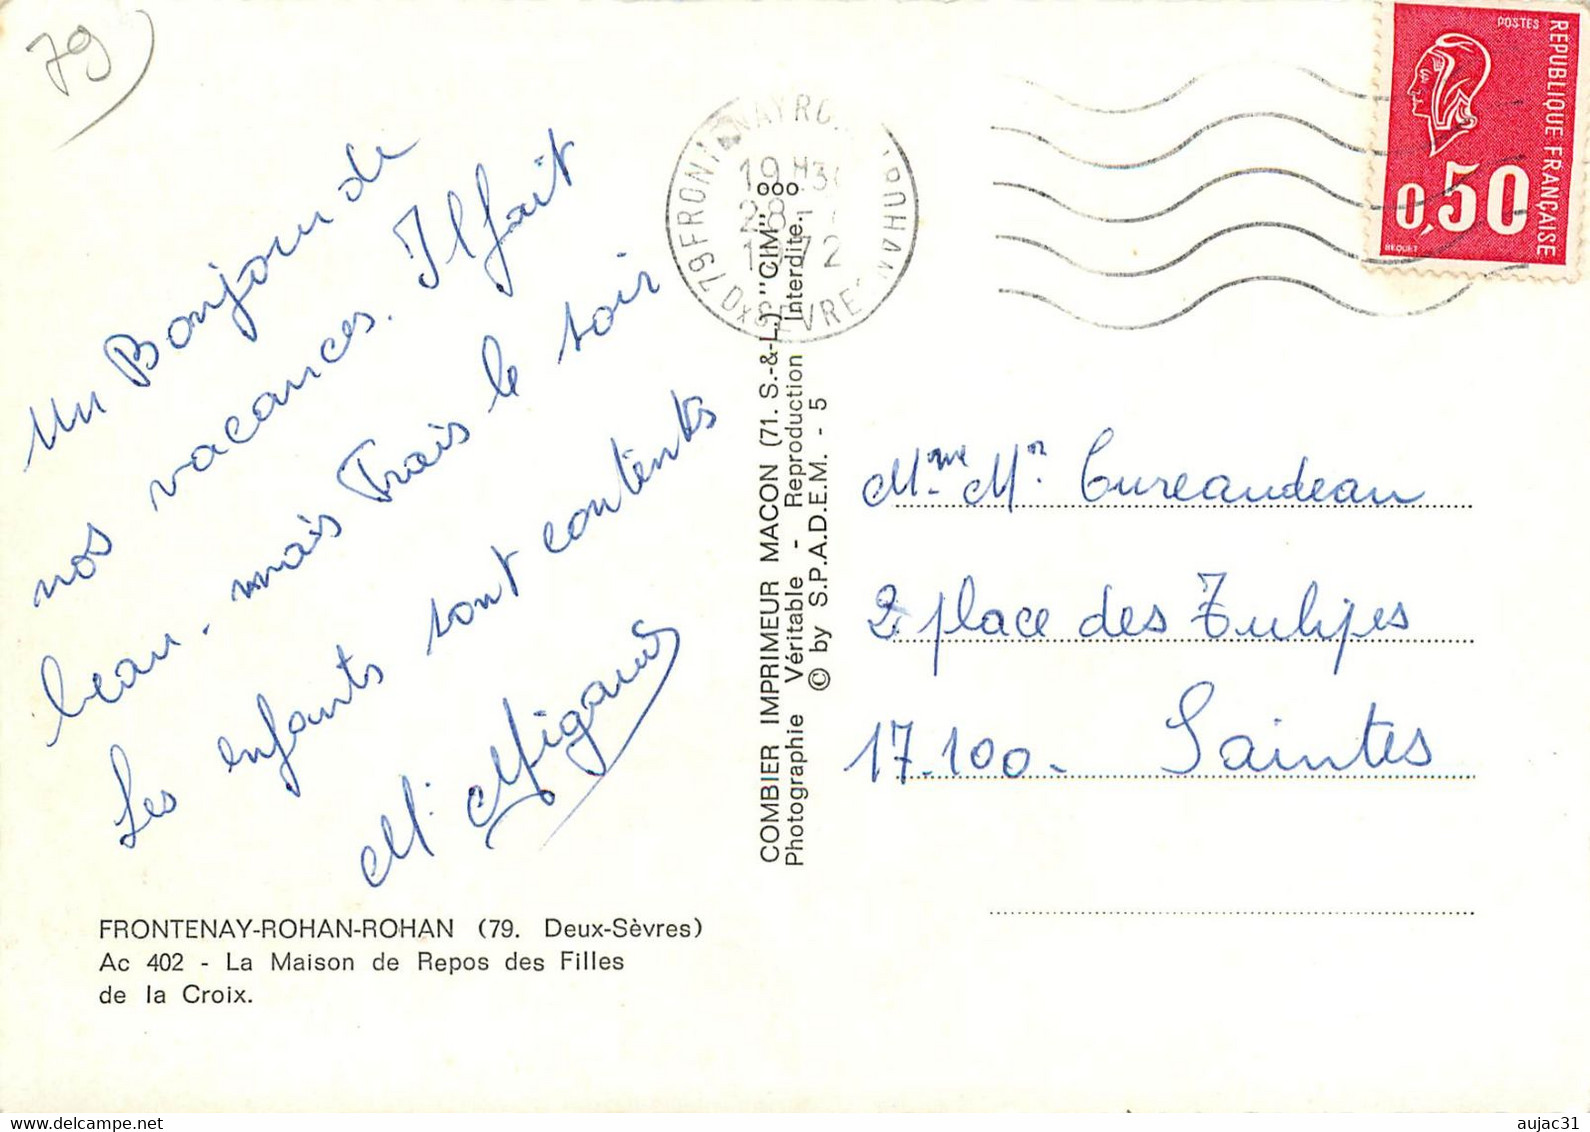 79
Un Bonjour de
nos vacances. Il fait
beau. mais Frais le soir
Les enfants sont contents
M. Migaud
FRONTENAY-ROHAN-ROHAN (79. Deux-Sèvres)
Ac 402 - La Maison de Repos des Filles
de la Croix.
COMBIER IMPRIMEUR MACON (71. S.-&-L.) "CIM"
Photographie Véritable - Reproduction Interdite.
© by S.P.A.D.E.M. - 5
19H30
28
1972
79 Dx SEVRES
POSTES
REPUBLIQUE FRANÇAISE
0,50
BEQUET
Mme Mr Cureaudeau
2 place des Tulipes
17.100. Saintes
www.delcampe.net
aujac31